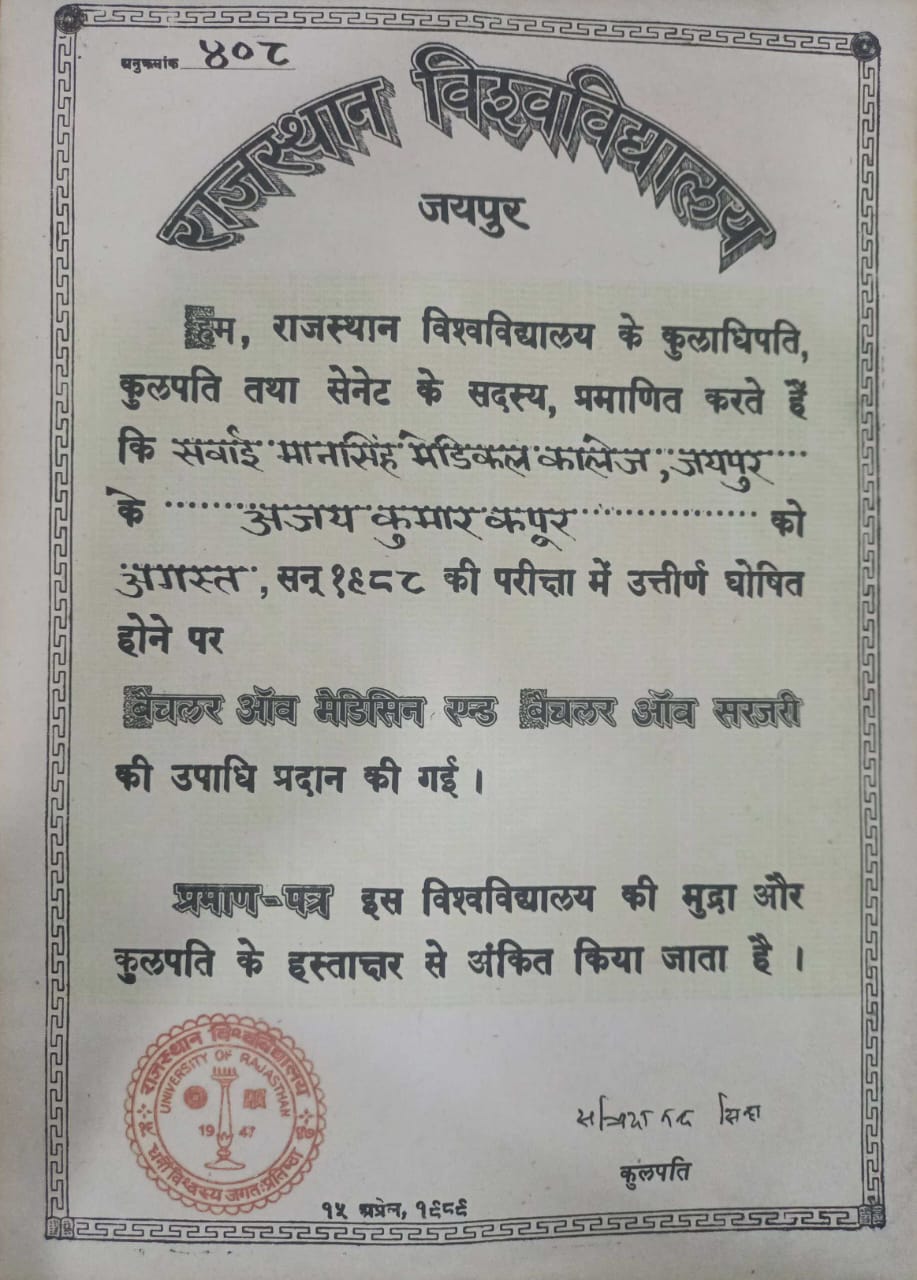 अनुक्रमांक ४०८
राजस्थान विश्वविद्यालय
जयपुर
हम, राजस्थान विश्वविद्यालय के कुलाधिपति,
कुलपति तथा सेनेट के सदस्य, प्रमाणित करते हैं
कि सवाई मानसिंह मेडिकल कालेज, जयपुर
के अजय कुमार कपूर को
अगस्त, सन् १९८८ की परीक्षा में उत्तीर्ण घोषित
होने पर
बैचलर ऑव मेडिसिन एण्ड बैचलर ऑव सरजरी
की उपाधि प्रदान की गई ।
प्रमाण-पत्र इस विश्वविद्यालय की मुद्रा और
कुलपति के हस्ताक्षर से अंकित किया जाता है ।
राजस्थान विश्वविद्यालय
UNIVERSITY OF RAJASTHAN
1947
धर्मो विश्वस्य जगतः प्रतिष्ठा
सिन्हा
कुलपति
१५ अप्रेल, १९८९